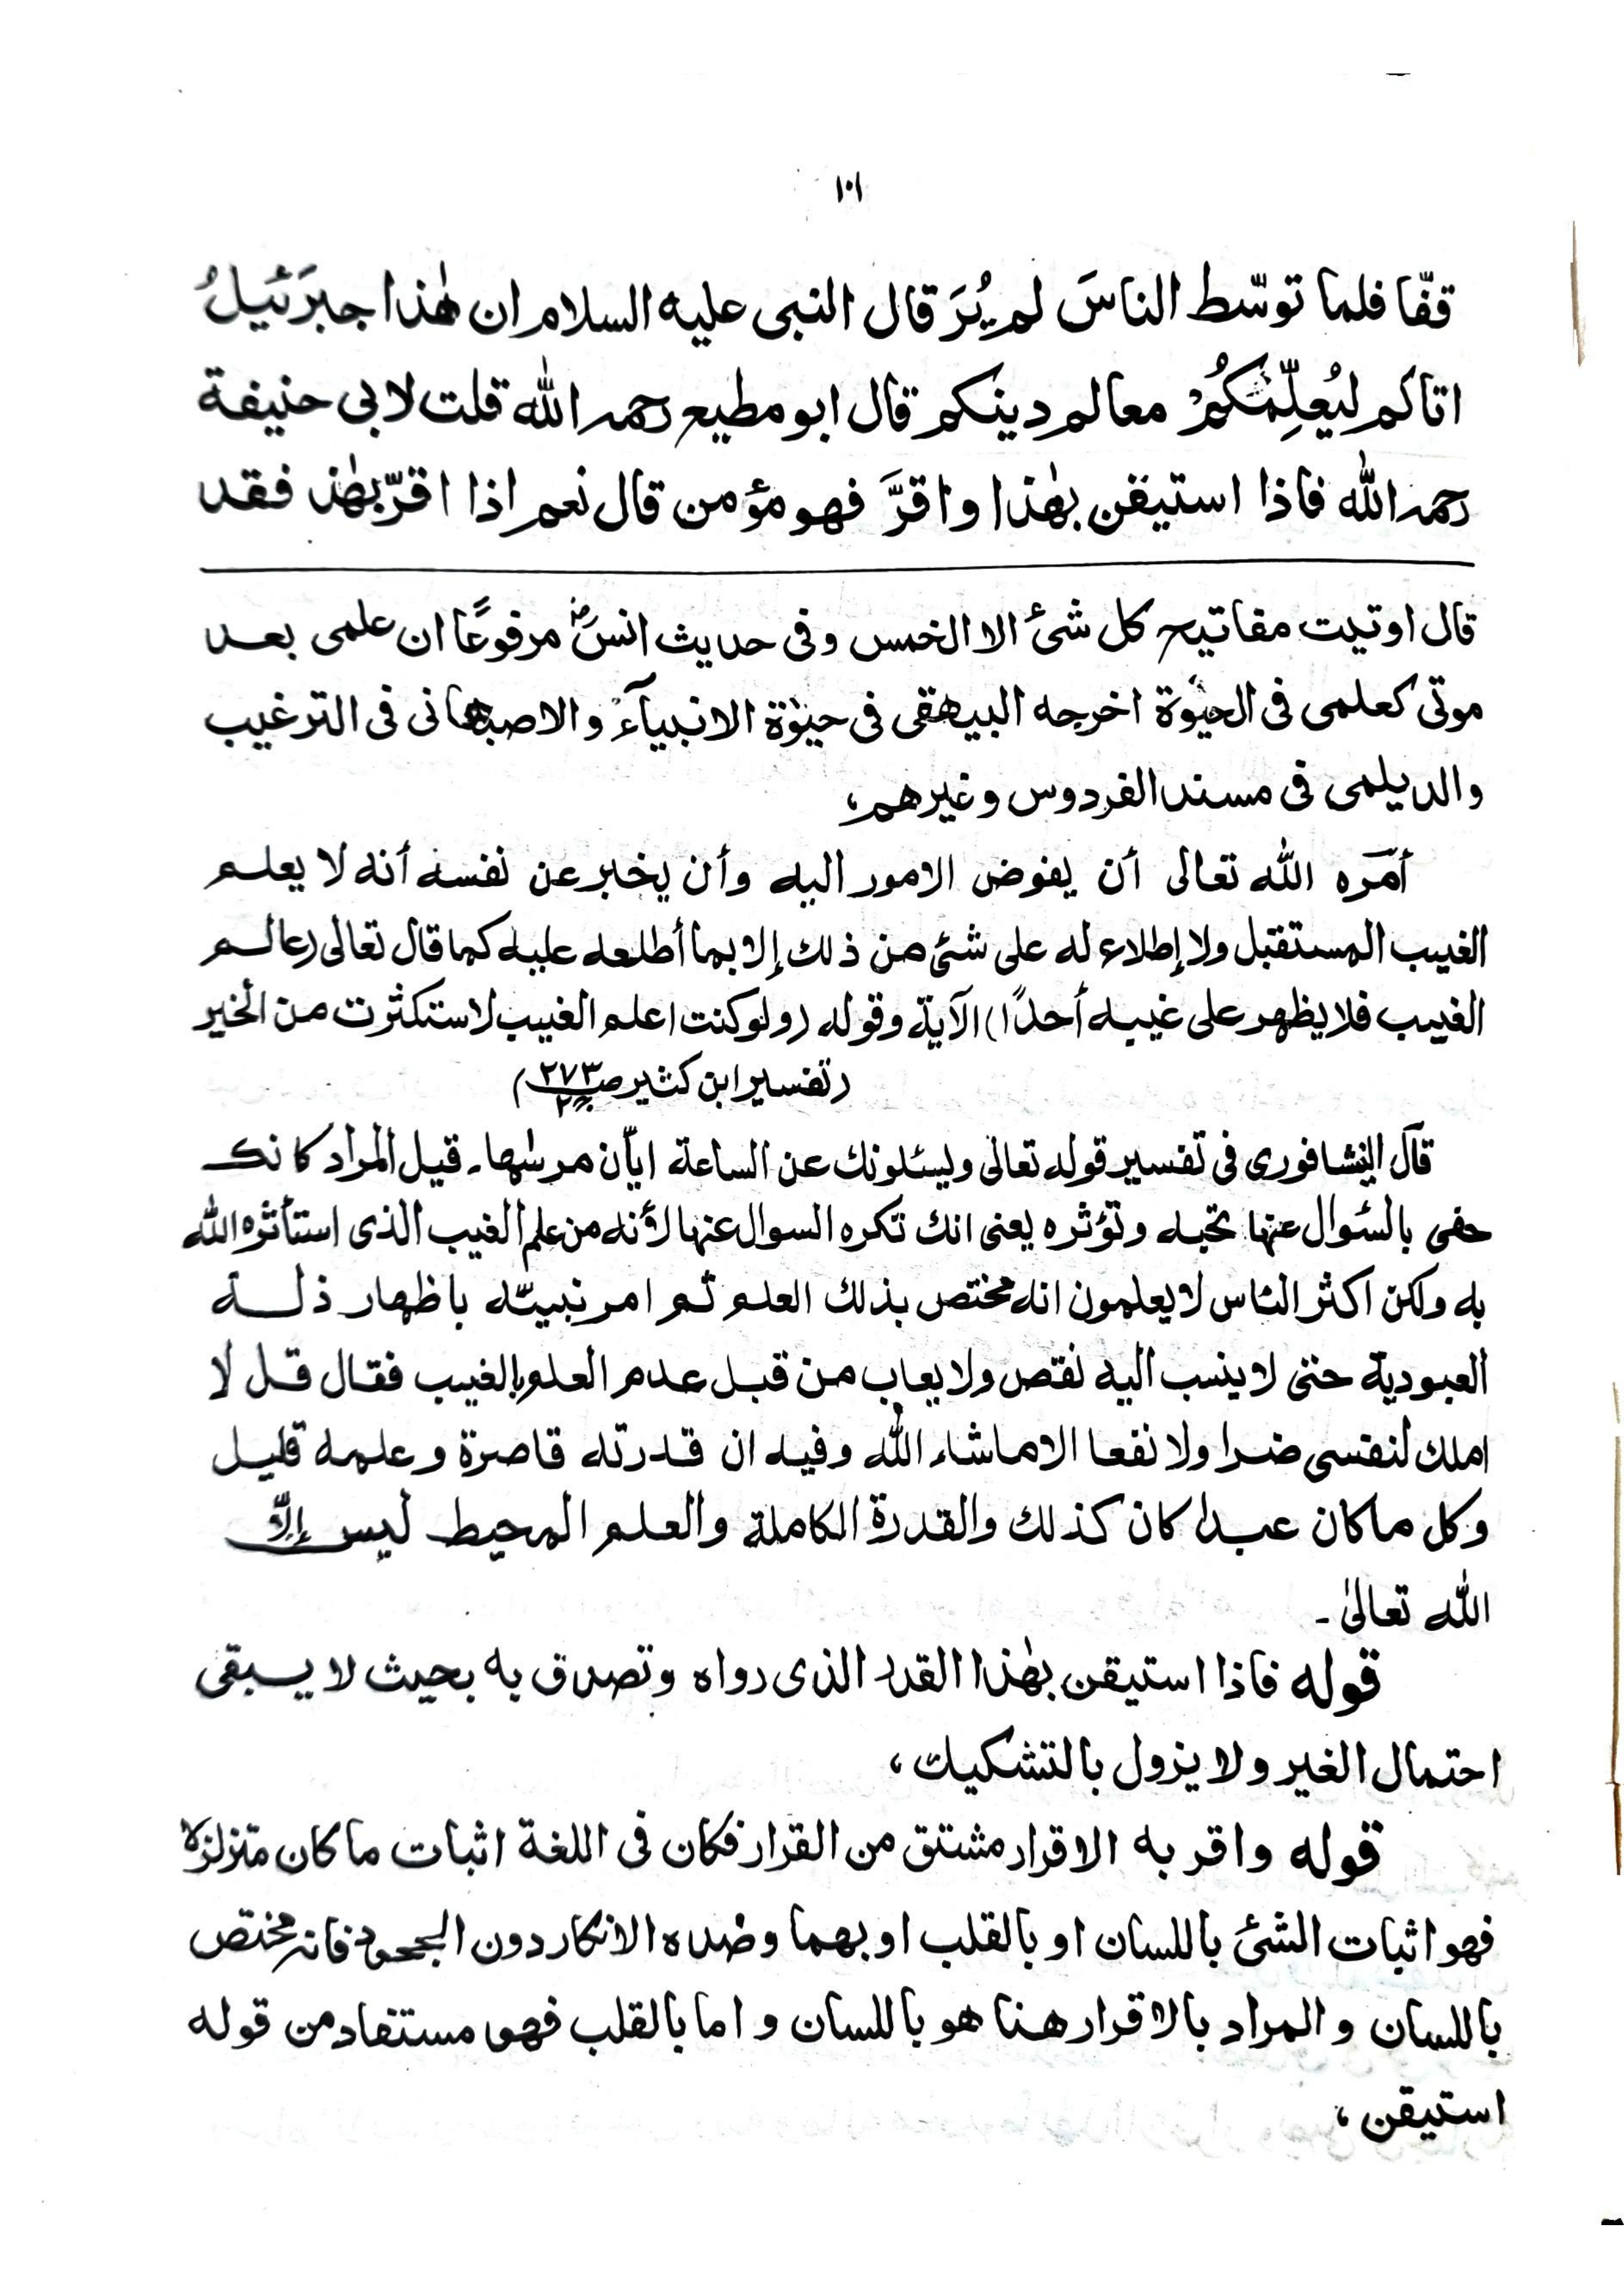 ١٠١
قفّا فلما توسّط الناسَ لم يُرَ قال النبى عليه السلام ان هٰذا جبرَئيلُ
اتاكم ليُعلِّمَكُمْ معالم دينكم قال ابو مطيع رحمه الله قلت لابى حنيفة
رحمه الله فاذا استيقن بهٰذا واقرَّ فهو مؤمن قال نعم اذا اقرّ بهٰذ فقد
قال اوتيت مفاتيح كل شئ الا الخمس وفى حديث انسؓ مرفوعًا ان علمى بعد
موتى كعلمى فى الحيٰوة اخرجه البيهقى فى حيٰوة الانبيآء والاصبهانى فى الترغيب
والديلمى فى مسند الفردوس وغيرهم،
أمَره الله تعالى أن يفوض الامور اليه وأن يخبر عن نفسه أنه لا يعلم
الغيب المستقبل ولا إطلاع له على شئ من ذلك إلا بما أطلعه عليه كما قال تعالى (عالم
الغيب فلا يظهر على غيبه أحدًا) الآية وقوله (ولو كنت اعلم الغيب لاستكثرت من الخير
(تفسير ابن كثير صـ٢٧٣ جـ٢)
قال النشافورى فى تفسير قوله تعالى ويسئلونك عن الساعة ايّان مرسٰها۔ قيل المراد كانك
حفى بالسئوال عنها تحبه وتؤثره يعنى انك تكره السوال عنها لأنه من علم الغيب الذى استأثره الله
به ولكن اكثر الناس لا يعلمون انه مختص بذلك العلم ثم امر نبيّه باظهار ذلة
العبودية حتى لا ينسب اليه نقص ولا يعاب من قبل عدم العلم بالغيب فقال قل لا
املك لنفسى ضرا ولا نفعا الا ماشاء الله وفيه ان قدرته قاصرة وعلمه قليل
وكل ما كان عبدا كان كذلك والقدرة الكاملة والعلم المحيط ليس إلّا
الله تعالىٰ۔
قوله فاذا استيقن بهٰذا القدر الذى رواه وتصدق به بحيث لا يسبقى
احتمال الغير ولا يزول بالتشكيك،
قوله واقر به الاقرار مشتق من القرار فكان فى اللغة اثبات ما كان متزلزلا
فهو اثبات الشئ باللسان او بالقلب او بهما وضده الانكار دون الجحود فانه مختص
باللسان والمراد بالاقرار هنا هو باللسان واما بالقلب فهو مستفاد من قوله
استيقن،